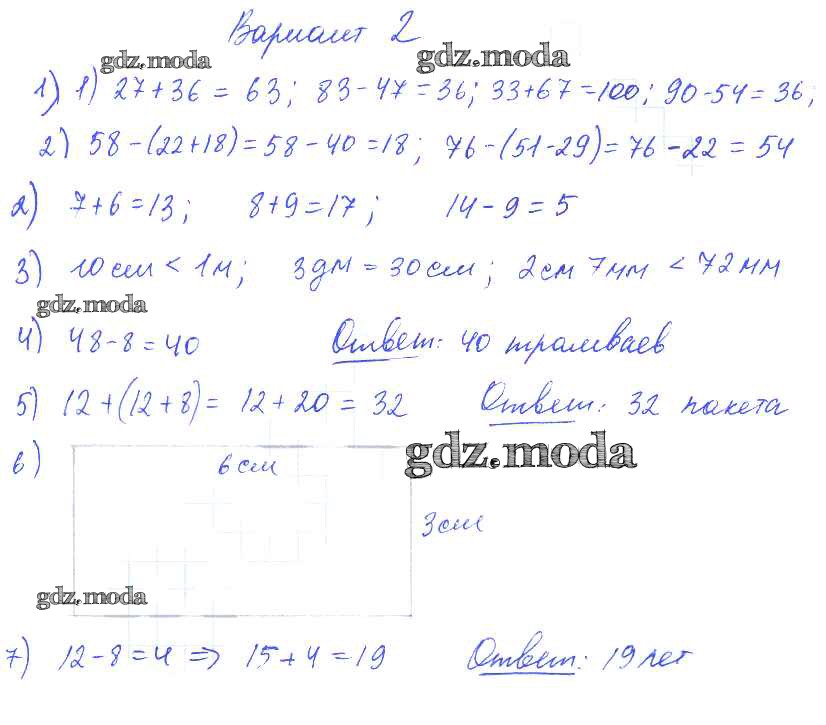 Вариант 2
gdz.moda gdz.moda
1) 1) 27+36 = 63; 83-47=36; 33+67=100; 90-54=36;
2) 58-(22+18)=58-40=18; 76-(51-29)=76-22=54
2) 7+6=13; 8+9=17; 14-9=5
3) 10см < 1м; 3дм = 30см; 2см 7мм < 72мм
gdz.moda
4) 48-8=40 Ответ: 40 трамваев
5) 12+(12+8)= 12+20=32 Ответ: 32 пакета
6) 6см gdz.moda
3см
gdz.moda
7) 12-8=4 => 15+4=19 Ответ: 19 лет